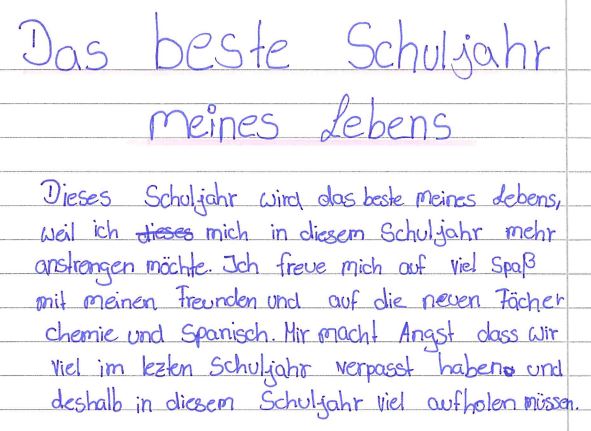 Das beste Schuljahr
meines Lebens
Dieses Schuljahr wird das beste meines Lebens,
weil ich dieses mich in diesem Schuljahr mehr
anstrengen möchte. Ich freue mich auf viel Spaß
mit meinen Freunden und auf die neuen Fächer
Chemie und Spanisch. Mir macht Angst dass wir
viel im lezten Schuljahr verpasst haben und
deshalb in diesem Schuljahr viel aufholen müssen.